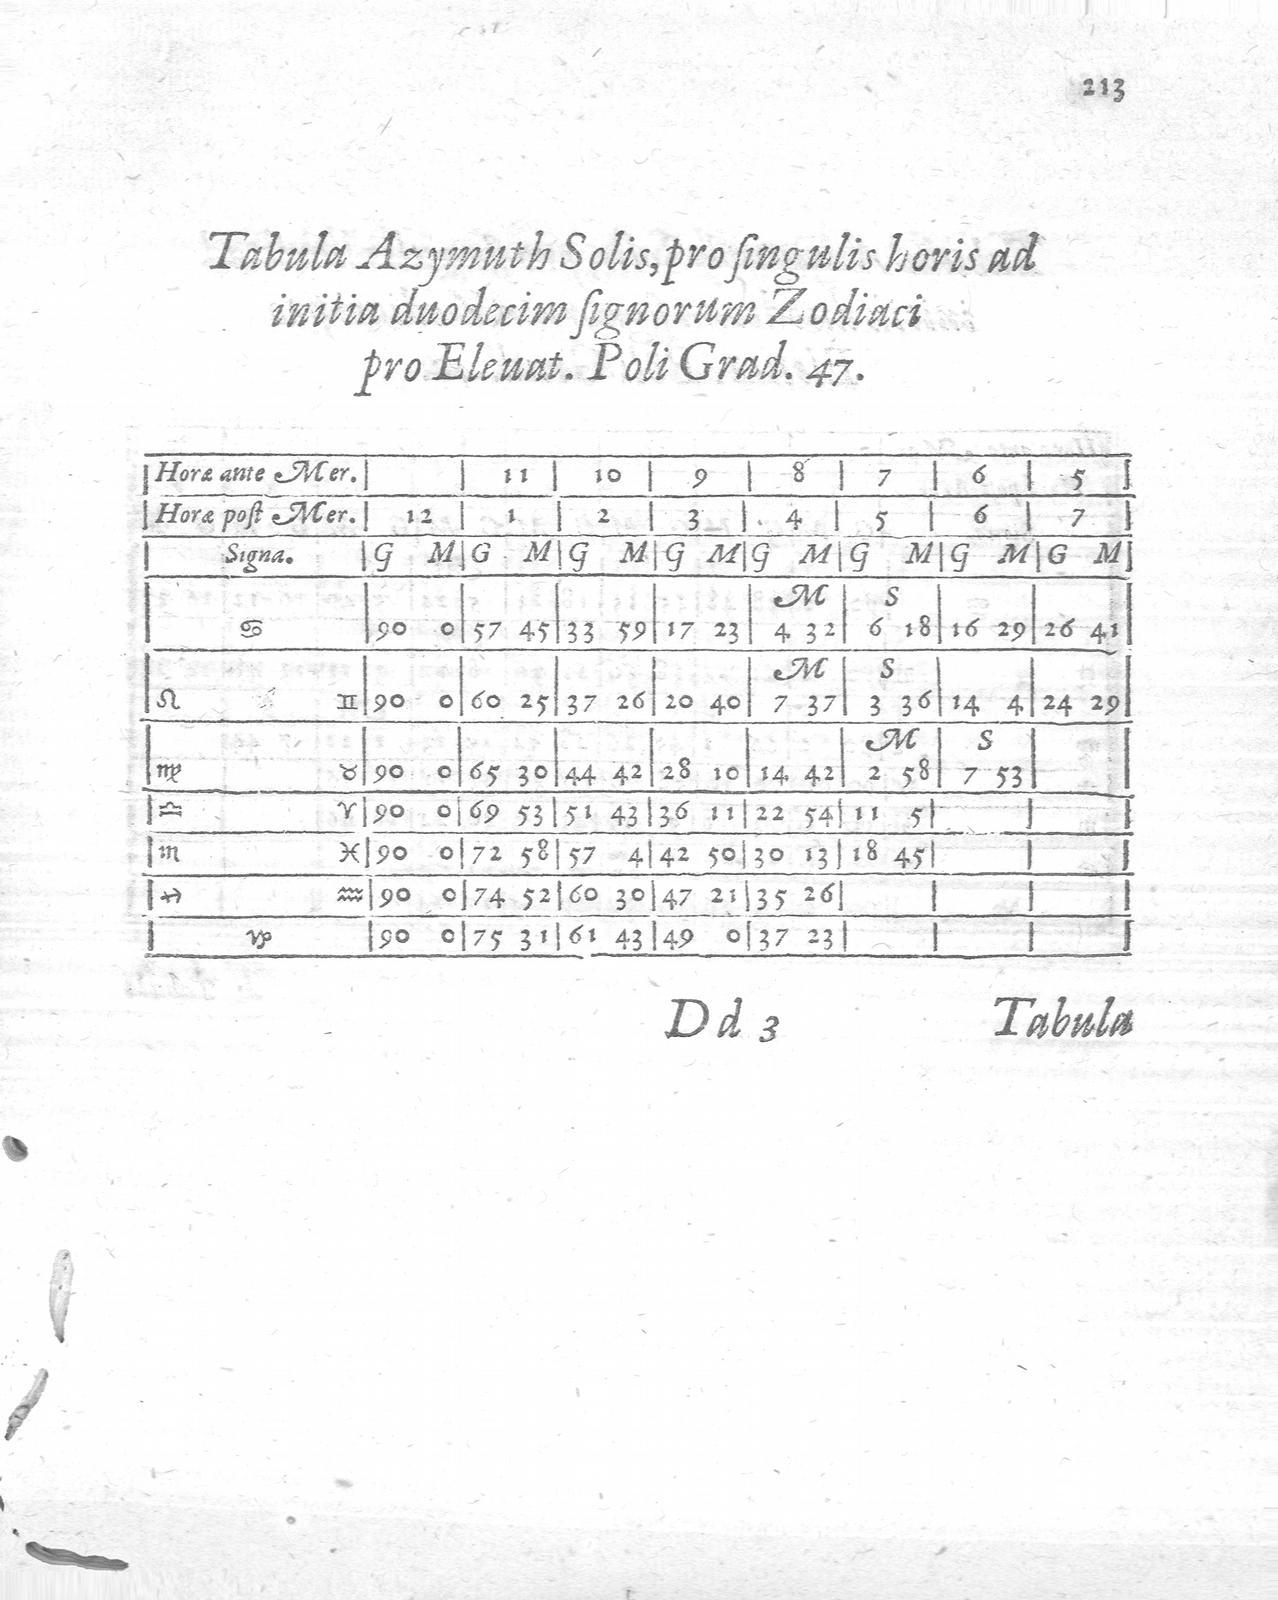 213
Tabula Azymuth Solis, pro ſingulis horis ad
initia duodecim ſignorum Zodiaci
pro Eleuat. Poli Grad. 47.
Horæ ante Mer. | | 11 | 10 | 9 | 8 | 7 | 6 | 5
Horæ poſt Mer. | 12 | 1 | 2 | 3 | 4 | 5 | 6 | 7
Signa. | G M | G M | G M | G M | G M | G M | G M | G M
M S
♋ | 90 0 | 57 45 | 33 59 | 17 23 | 4 32 | 6 18 | 16 29 | 26 41
M S
♌ ♊ | 90 0 | 60 25 | 37 26 | 20 40 | 7 37 | 3 36 | 14 4 | 24 29
M S
♍ ♉ | 90 0 | 65 30 | 44 42 | 28 10 | 14 42 | 2 58 | 7 53
♎ ♈ | 90 0 | 69 53 | 51 43 | 36 11 | 22 54 | 11 5
♏ ♓ | 90 0 | 72 58 | 57 4 | 42 50 | 30 13 | 18 45
♐ ♒ | 90 0 | 74 52 | 60 30 | 47 21 | 35 26
♑ | 90 0 | 75 31 | 61 43 | 49 0 | 37 23
Dd 3 Tabula